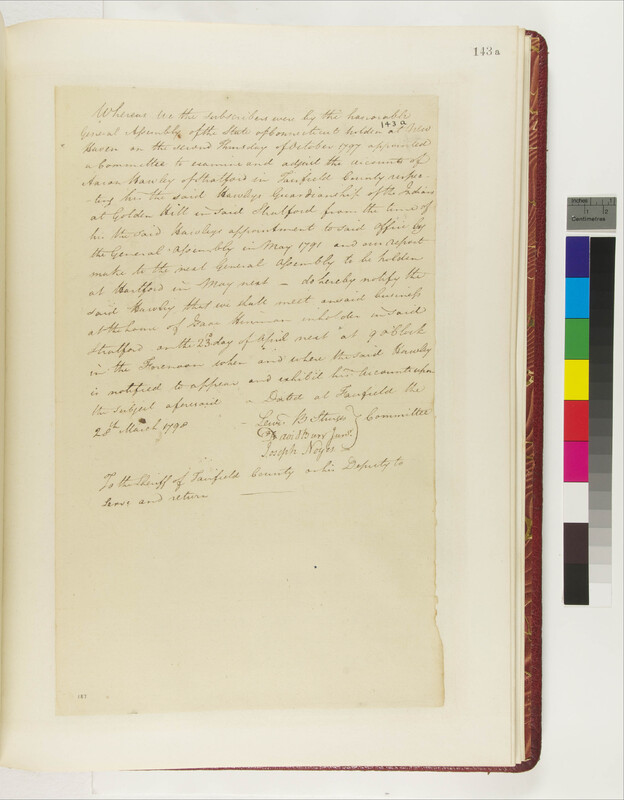 143 a
Whereas we the subscribers were by the honorable
General Assembly of the State of Connecticut holden at New
143 a
Haven on the second Thursday of October 1797 appointed
a Committee to examine and adjust the accounts of
Aaron Hawley of Stratford in Fairfield County respec-
-ting his the said Hawleys Guardianship of the Indians
at Golden Hill in said Stratford from the time of
his the said Hawleys appointment to said Office by
the General Assembly in May 1791 and our report
make to the next General Assembly to be holden
at Hartford in May next – do hereby notify the
said Hawley that we shall meet on said business
at the house of Isaac Hinman inholder in said
Stratford on the 23d day of April next at 9 oClock
in the Forenoon when and where the said Hawley
is notified to appear and exhibit his Accounts upon
the subject aforesaid – Dated at Fairfield the
28th March 1798
Lewis B Sturges
David Burr Junr. Committee
Joseph Noyes
To the Sheriff of Fairfield County or his Deputy to
Serve and return
Inches
Centimetres